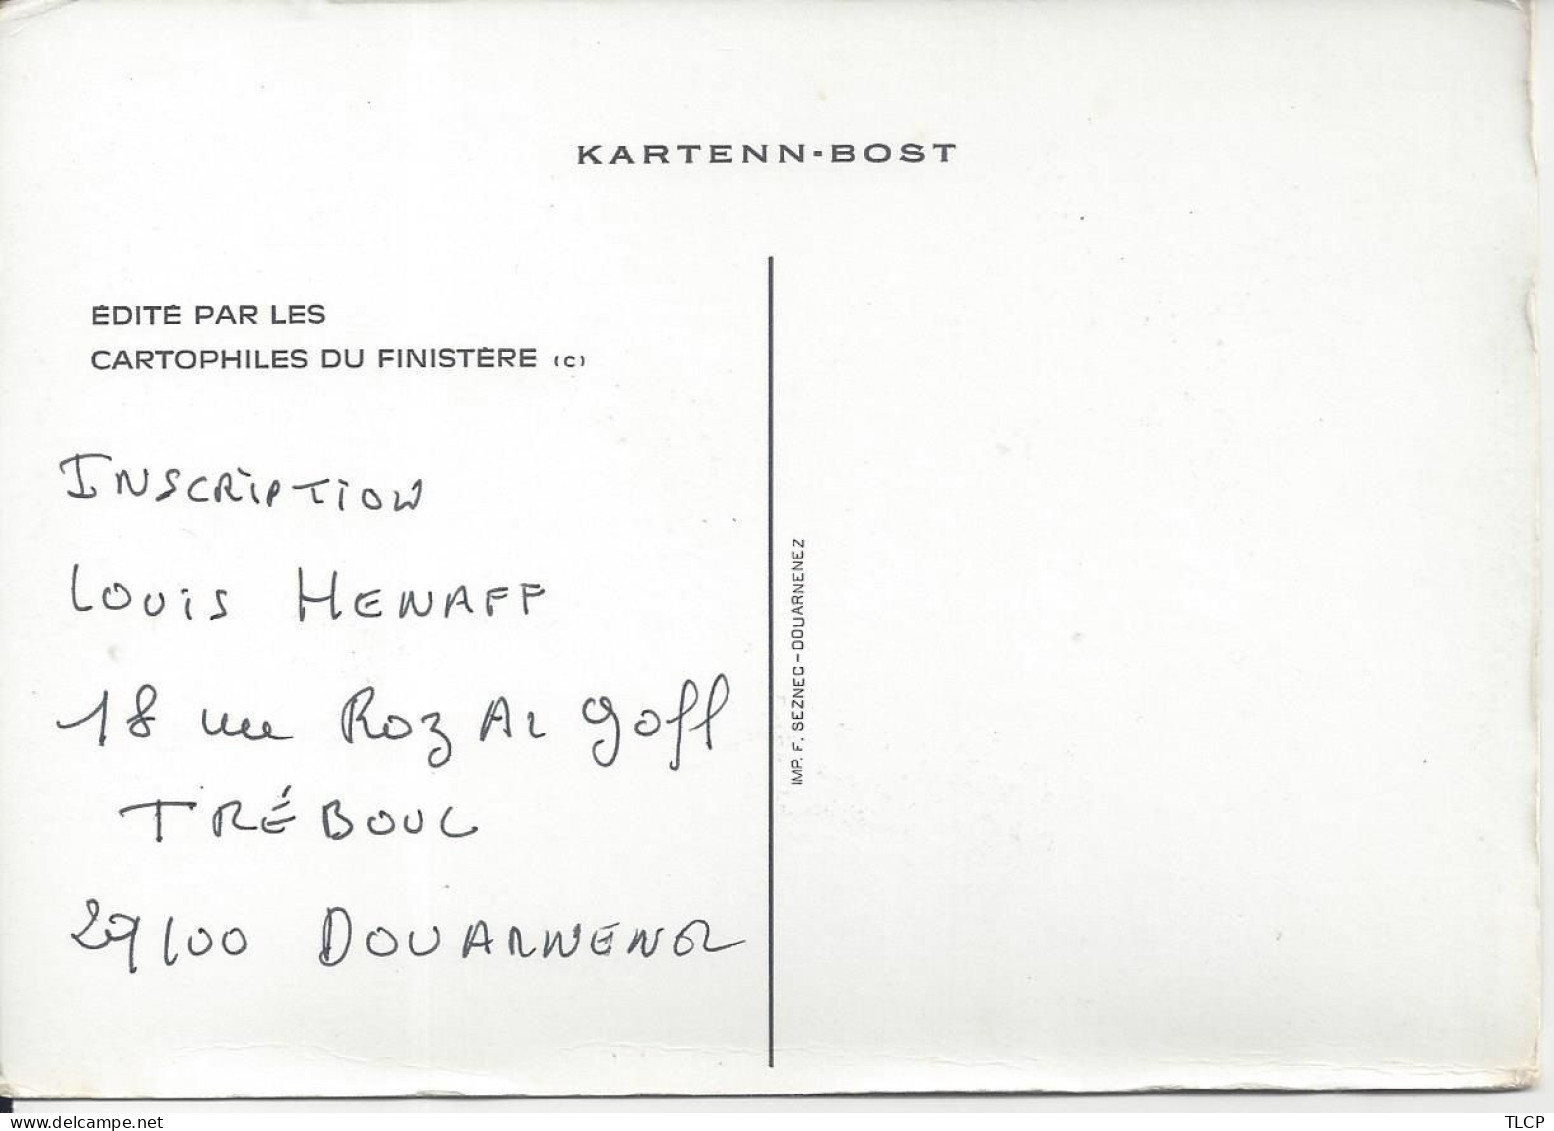 KARTENN-BOST
ÉDITÉ PAR LES
CARTOPHILES DU FINISTÈRE (C)
INSCRIPTION
LOUIS HENAFF
18 rue Roz AR goff
TRÉBOUL
29100 DOUARNENEZ
IMP. F. SEZNEC-DOUARNENEZ
www.delcampe.net
TLCP